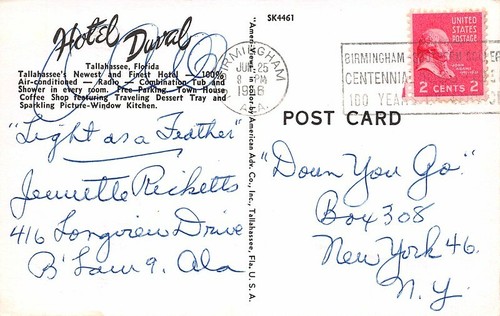 SK4461
Hotel Duval
Tallahassee, Florida
Tallahassee's Newest and Finest Hotel — 100%
Air-conditioned — Radio — Combination Tub and
Shower in every room. Free Parking. Town House
Coffee Shop featuring Traveling Dessert Tray and
Sparkling Picture-Window Kitchen.
"Light as a Feather"
Jeannette Ricketts
416 Longview Drive
B'ham 9. Ala
American Adv. Co., Inc., Tallahassee, Fla, U. S. A.
BIRMINGHAM
JUN 25
8 PM
ALA.
BIRMINGHAM
CENTENNIAL
100 YEAR
UNITED
STATES
POSTAGE
2 CENTS 2
POST CARD
"Down You Go."
Box 308
New York 46.
N. Y.